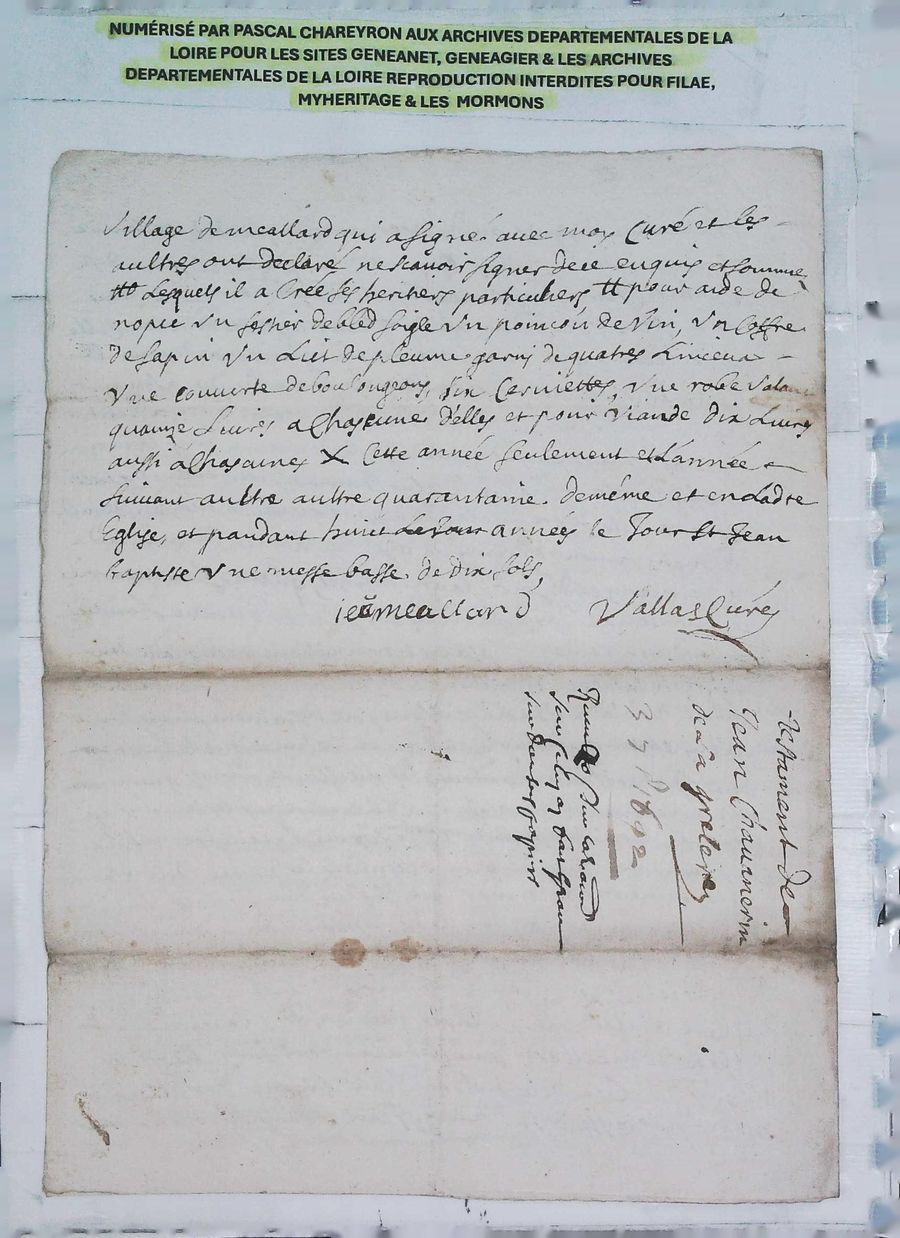 NUMÉRISÉ PAR PASCAL CHAREYRON AUX ARCHIVES DEPARTEMENTALES DE LA
LOIRE POUR LES SITES GENEANET, GENEAGIER & LES ARCHIVES
DEPARTEMENTALES DE LA LOIRE REPRODUCTION INTERDITES POUR FILAE,
MYHERITAGE & LES MORMONS
Village de meallard qui a signé avec moy Curé et les
aultres ont declaré ne scavoir signer de ce enquis et somme
Lesquels il a Creé ses heritiers particuliers # pour aide de
nopce un sestier de bled soigle un poincon de vin, un Coffre
de sapin un Lict de pleume garni de quatres Linceux
une couverte de six serviettes, une robe valant
quainze Livres a Chascune d'elles et pour viande dix Livres
aussi a Chascunes X Cette année seulement et L'année
suivant aultre aultre quarantaine. de méme et en Ladte
Eglise, et pandant huict Le Jour années le Jour St Jean
baptiste une messe basse de dix sols,
jeā meallard Vallas Curé
Testament de
Jean Chauvnerin
de La
3
sur
sur
sur papiers